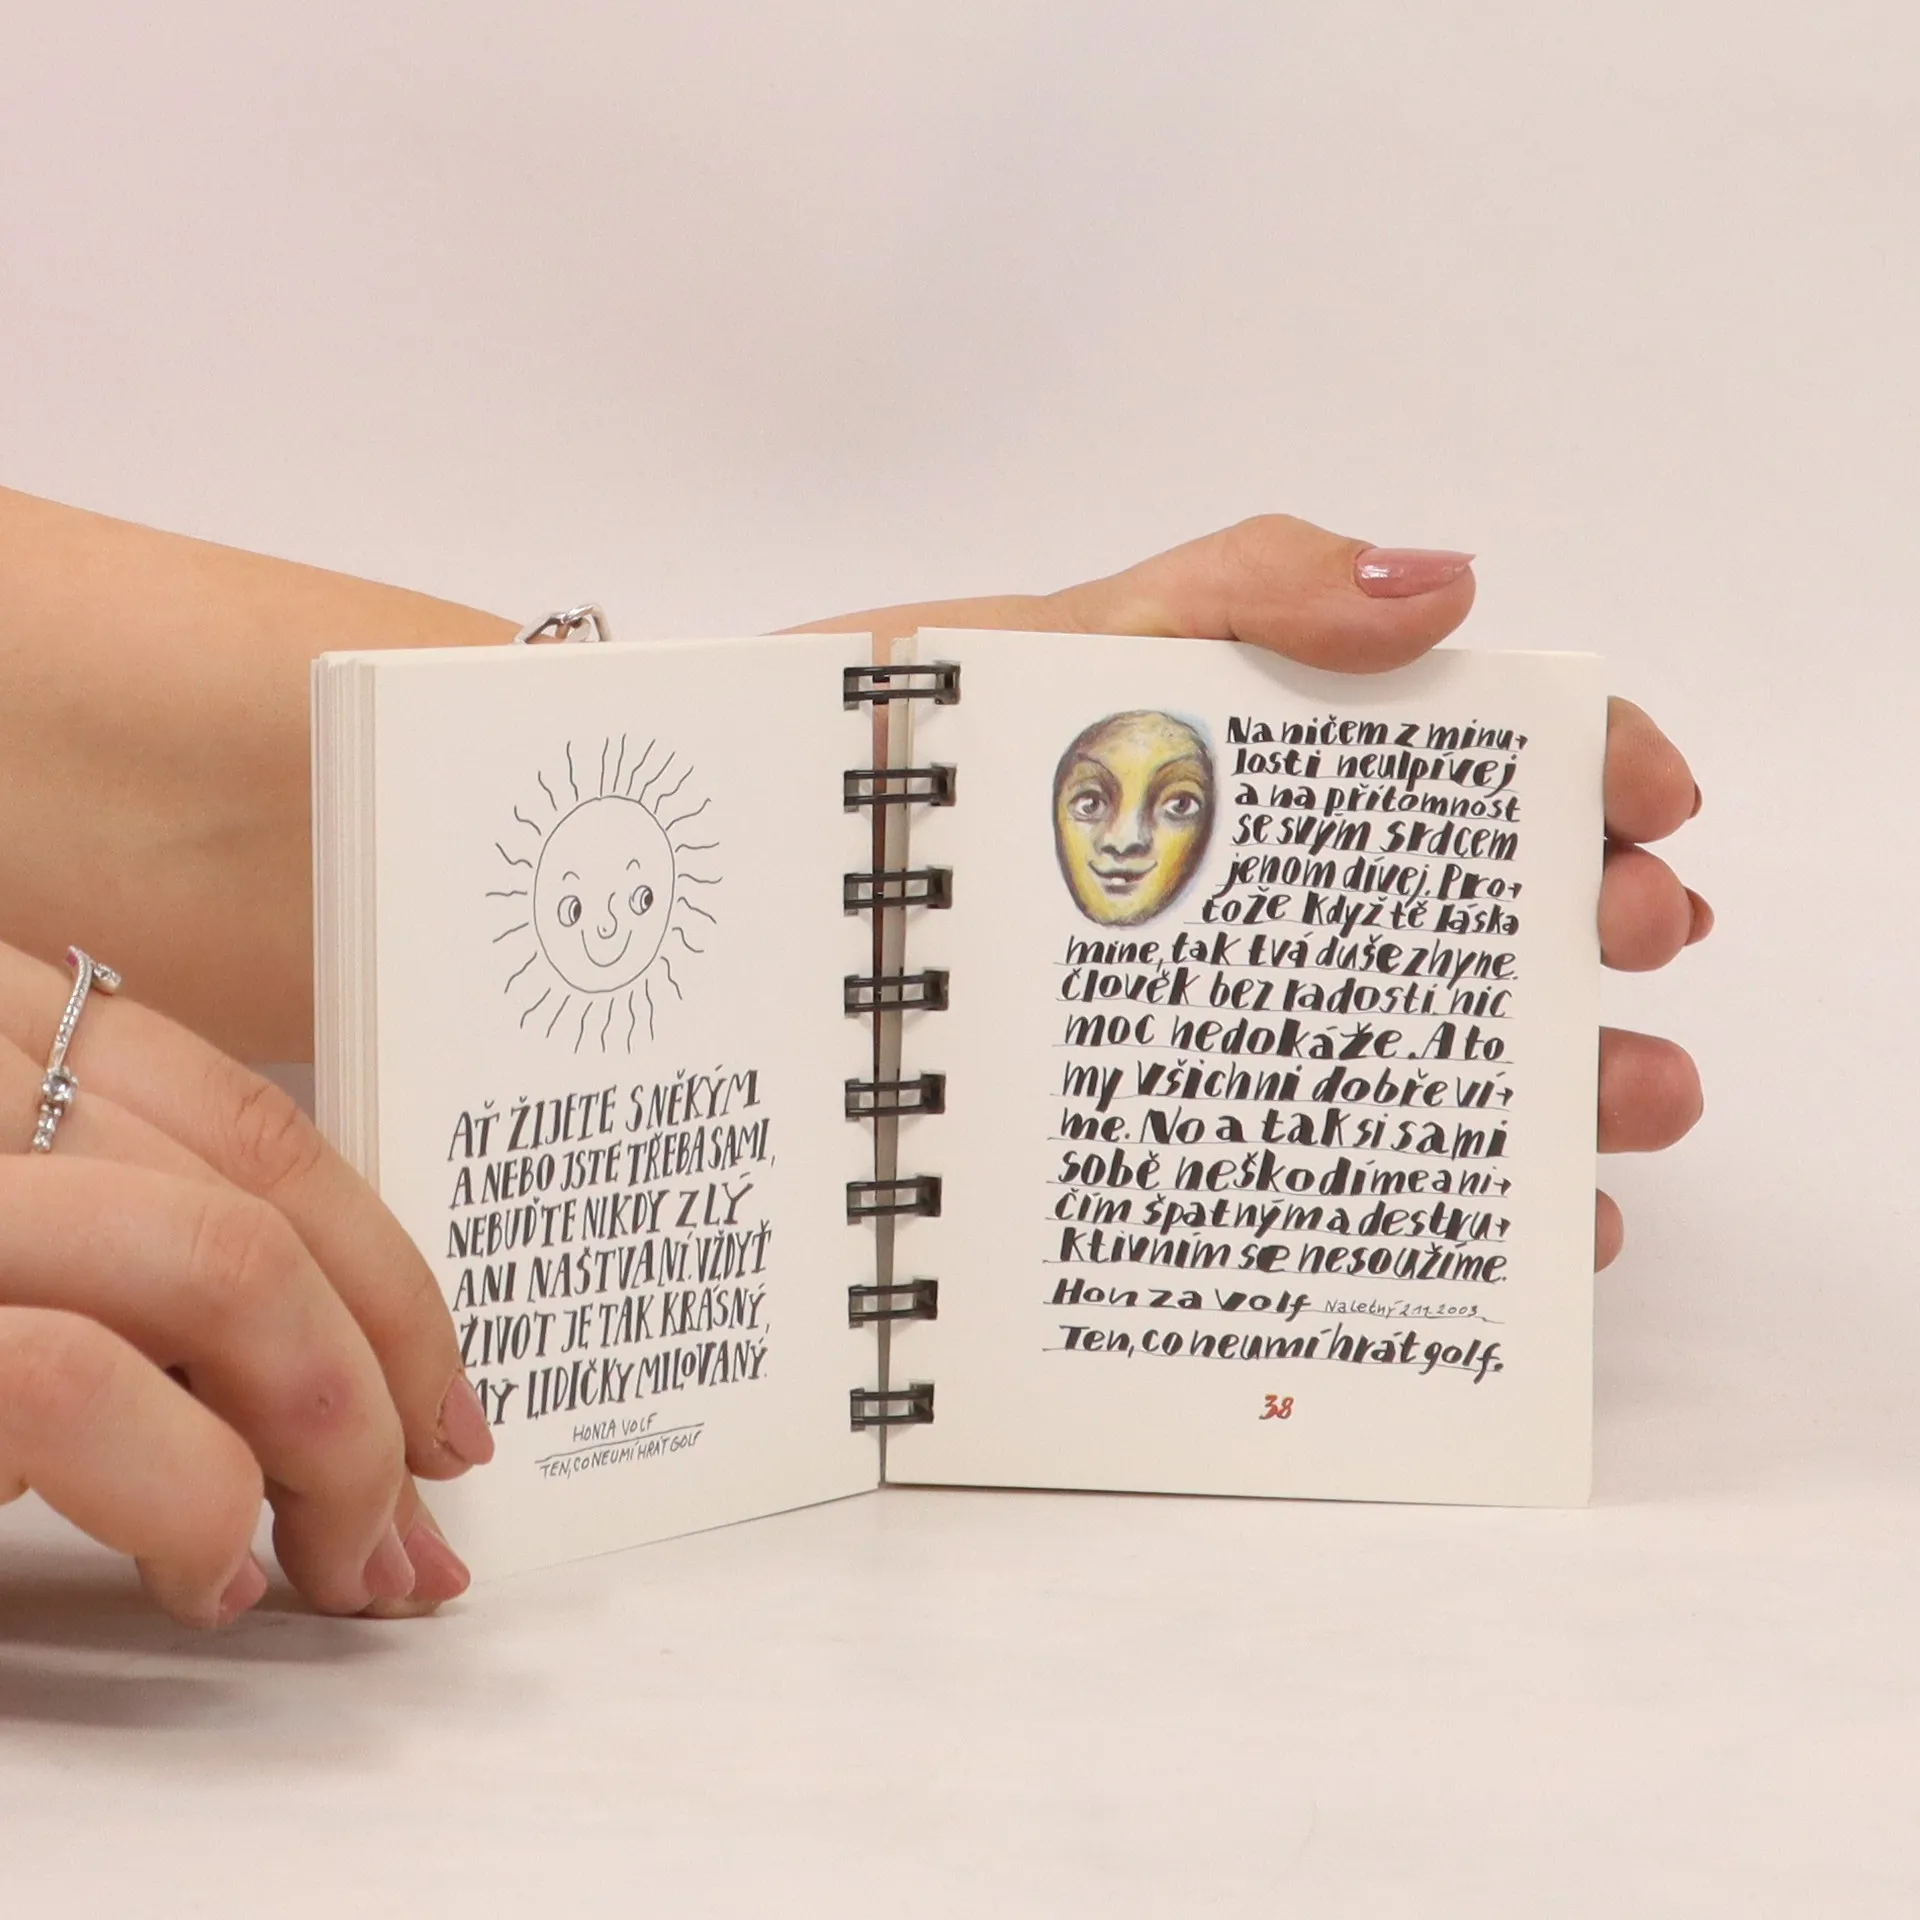 AŤ ŽIJETE S NĚKÝM
A NEBO JSTE TŘEBA SAMI,
NEBUĎTE NIKDY ZLÝ
ANI NAŠTVANÍ. VŽDYŤ
ŽIVOT JE TAK KRÁSNÝ,
MÝ LIDIČKY MILOVANÝ.
HONZA VOLF
TEN, CO NEUMÍ HRÁT GOLF
Na ničem z minu-
losti neulpívej
a na přítomnost
se svým srdcem
jenom dívej. Pro-
tože když tě láska
mine, tak tvá duše zhyne.
Člověk bez radosti nic
moc nedokáže. A to
my všichni dobře ví-
me. No a tak si sami
sobě neškodíme a ni-
čím špatným a destru-
ktivním se nesoužíme.
Honza Volf Naletný 2.11.2003
Ten, co neumí hrát golf.
38